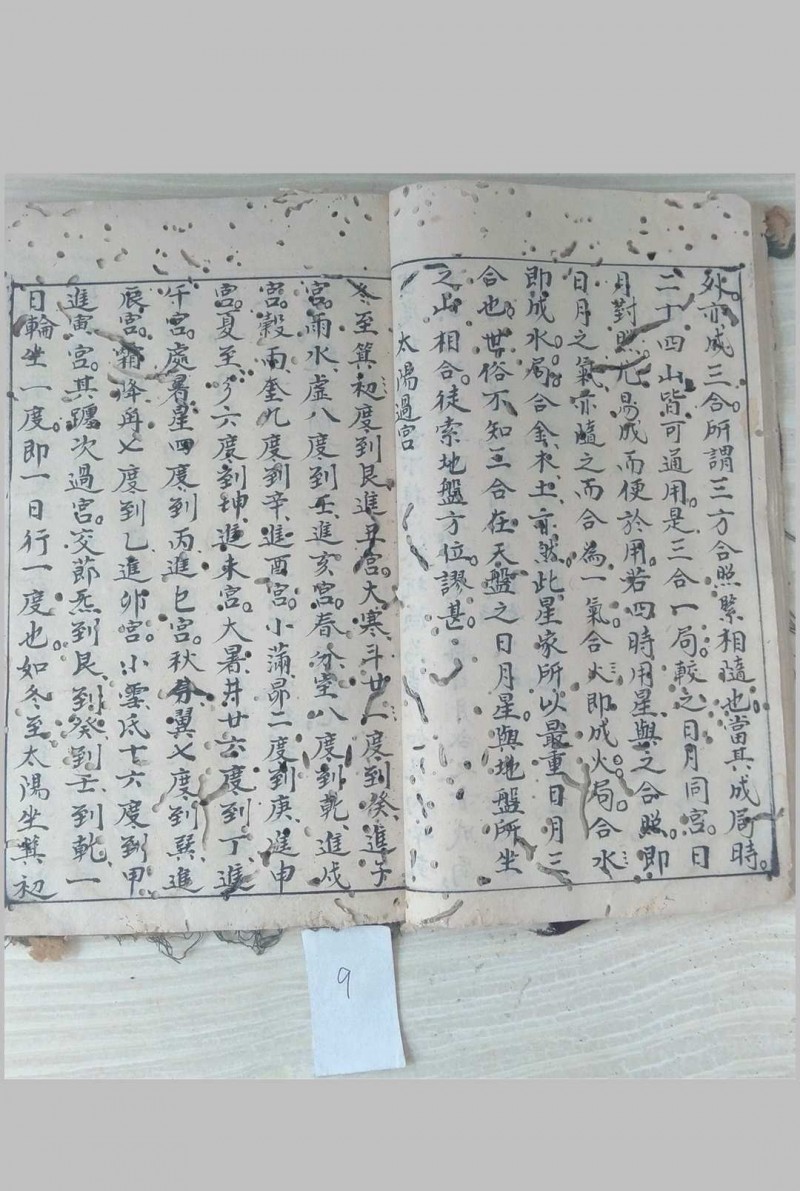 外亦成三合所謂三方合照緊相隨也當其成局時
二十四山皆可通用是三合一局較之日月同宮日
月對照尤易成而便於用若四時用星與之合照即
日月之氣亦隨之而合為一氣合火即成火局合水
即成水局合金木土亦然此星家所以最重日月三
合也世俗不知三合在天盤之日月星與地盤所坐
之山相合徒索地盤方位謬甚
太陽過宮
冬至箕初度到艮進丑宮大寒斗廿一度到癸進子
宮雨水虛八度到壬進亥宮春分室八度到乾進戌
宮穀雨奎九度到辛進酉宮小滿昴二度到庚進申
宮夏至參六度到坤進未宮大暑井廿六度到丁進
午宮處暑星四度到丙進巳宮秋分翼七度到巽進
辰宮霜降角七度到乙進卯宮小雪氐十六度到甲
進寅宮其躔次過宮交節炁到艮到癸到壬到乾一
日輪坐一度即一日行一度也如冬至太陽坐箕初
9